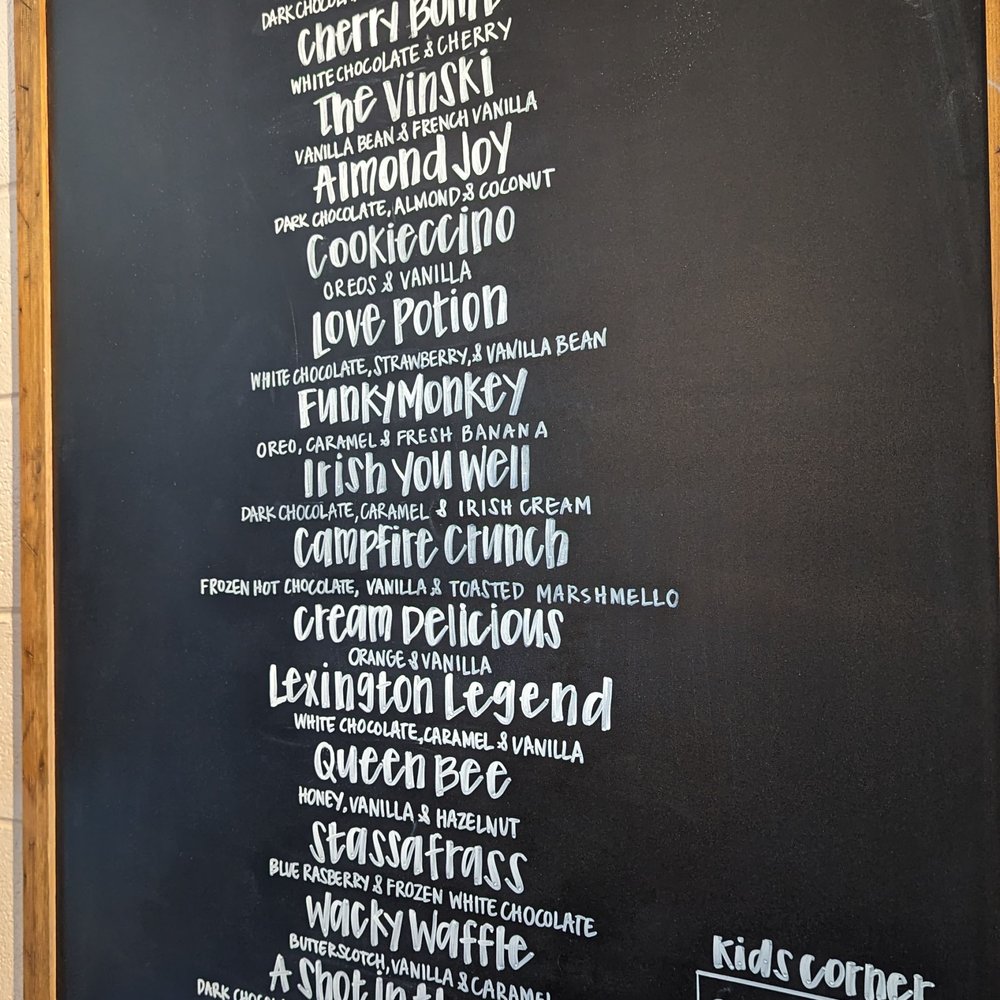 DARK CHOCOLA
Cherry Bomb
WHITE CHOCOLATE & CHERRY
The Vinski
VANILLA BEAN & FRENCH VANILLA
Almond Joy
DARK CHOCOLATE, ALMOND & COCONUT
Cookieccino
OREOS & VANILLA
Love Potion
WHITE CHOCOLATE, STRAWBERRY, & VANILLA BEAN
Funky Monkey
OREO, CARAMEL & FRESH BANANA
Irish You Well
DARK CHOCOLATE, CARAMEL & IRISH CREAM
Campfire Crunch
FROZEN HOT CHOCOLATE, VANILLA & TOASTED MARSHMELLO
Cream Delicious
ORANGE & VANILLA
Lexington Legend
WHITE CHOCOLATE, CARAMEL & VANILLA
Queen Bee
HONEY, VANILLA & HAZELNUT
Stassafrass
BLUE RASBERRY & FROZEN WHITE CHOCOLATE
Wacky Waffle
BUTTERSCOTCH, VANILLA & CARAMEL
A Shot in th
DARK CHOC
Kids Corner